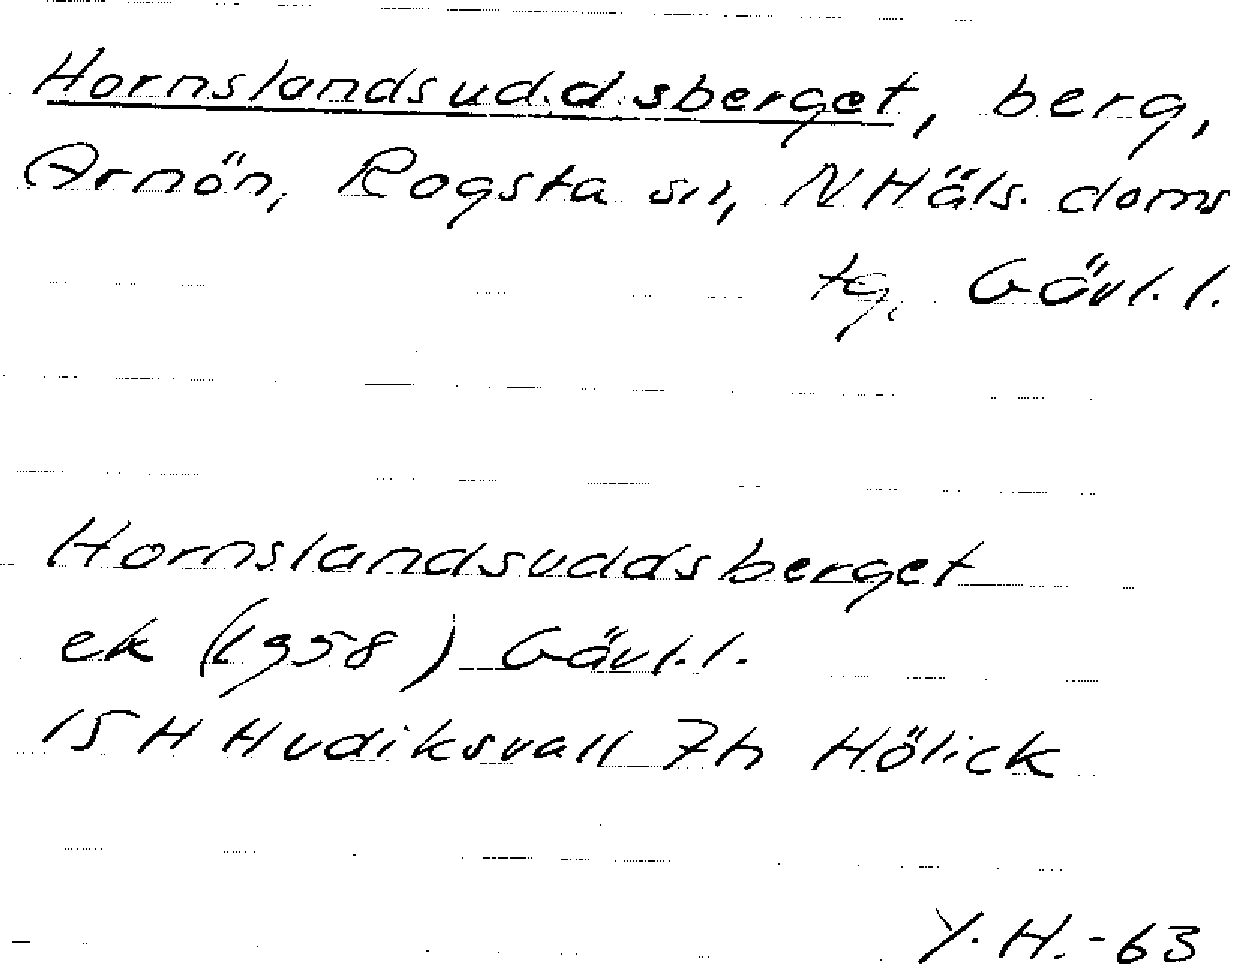 Hornslandsuddsberget, berg,
Arnön, Rogsta sn, N Häls. doms
tg, Gävl. l.
Hornslandsuddsberget
ek (1958) Gävl. l.
15 H Hudiksvall 7h Hölick
Y. H. - 63